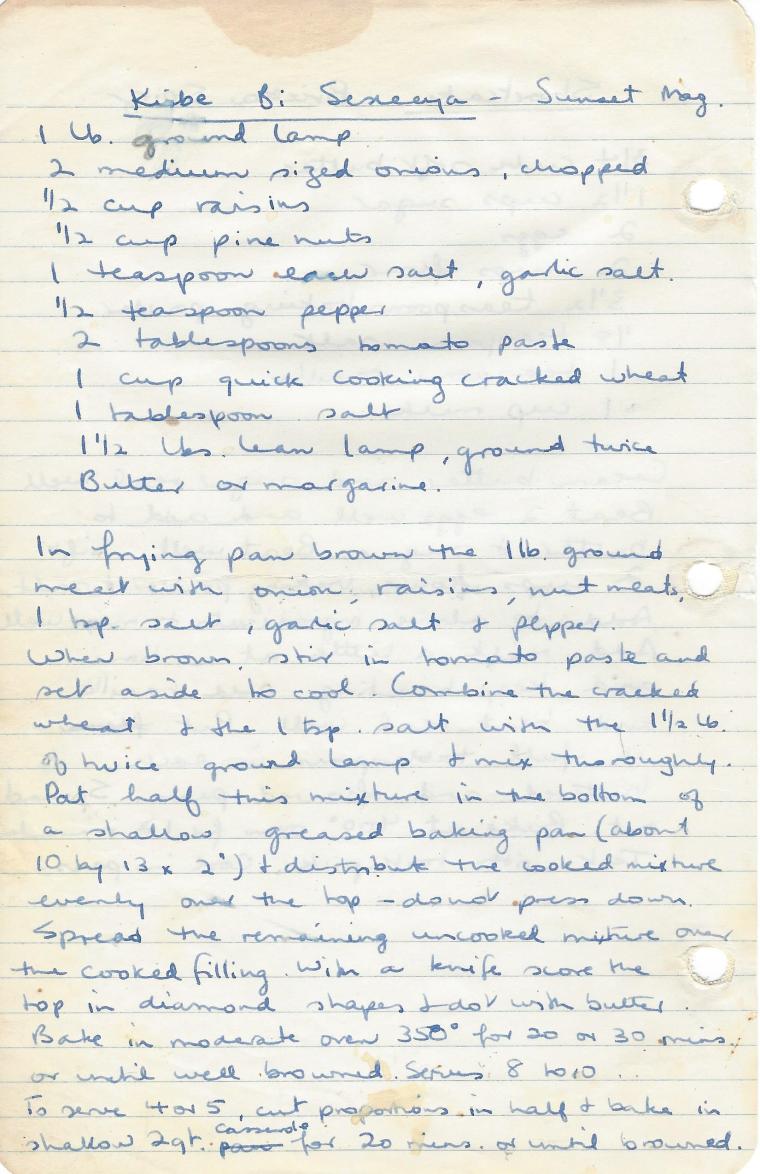 Kisbe Bi Seneeya - Sunset Mag.
1 lb. ground lamp
2 medium sized onions, chopped
1/2 cup raisins
1/2 cup pine nuts
1 teaspoon each salt, garlic salt.
1/2 teaspoon pepper
2 tablespoons tomato paste
1 cup quick cooking cracked wheat
1 tablespoon salt
1 1/2 lbs. lean lamp, ground twice
Butter or margarine.
In frying pan brown the 1 lb. ground
meat with onion, raisins, nut meats,
1 tsp. salt, garlic salt & pepper.
When brown, stir in tomato paste and
set aside to cool. Combine the cracked
wheat & the 1 tsp. salt with the 1 1/2 lb.
of twice ground lamp & mix thoroughly.
Pat half this mixture in the bottom of
a shallow greased baking pan (about
10 by 13 x 2") & distribute the cooked mixture
evenly over the top - do not press down.
Spread the remaining uncooked mixture over
the cooked filling. With a knife score the
top in diamond shapes & dot with butter.
Bake in moderate oven 350° for 20 or 30 mins.
or until well browned. Serves 8 to 10..
To serve 4 or 5, cut proportions in half & bake in
shallow 2 qt. casserole for 20 mins. or until browned.